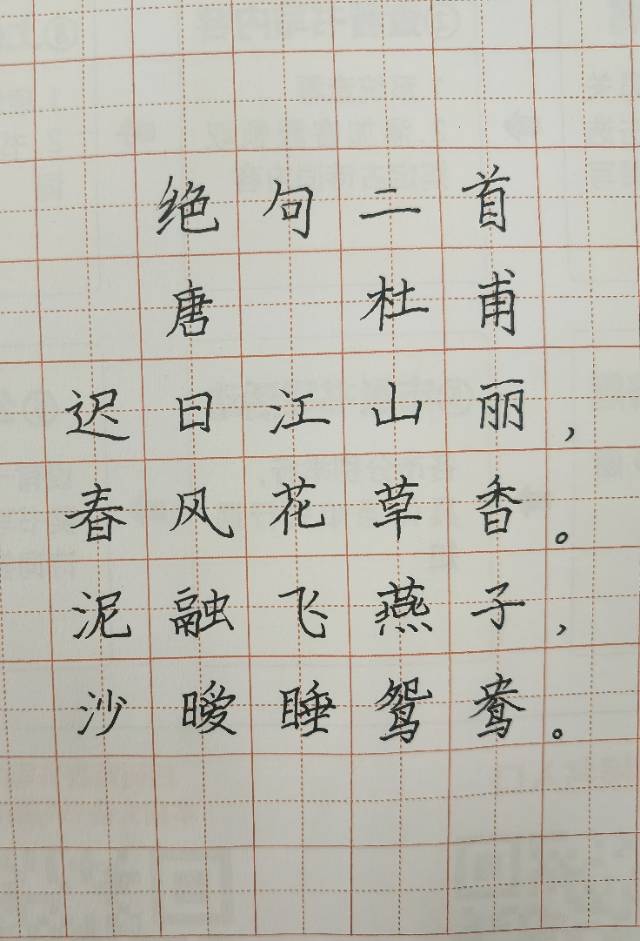 绝句二首
唐 杜甫
迟日江山丽，
春风花草香。
泥融飞燕子，
沙暧睡鸳鸯。